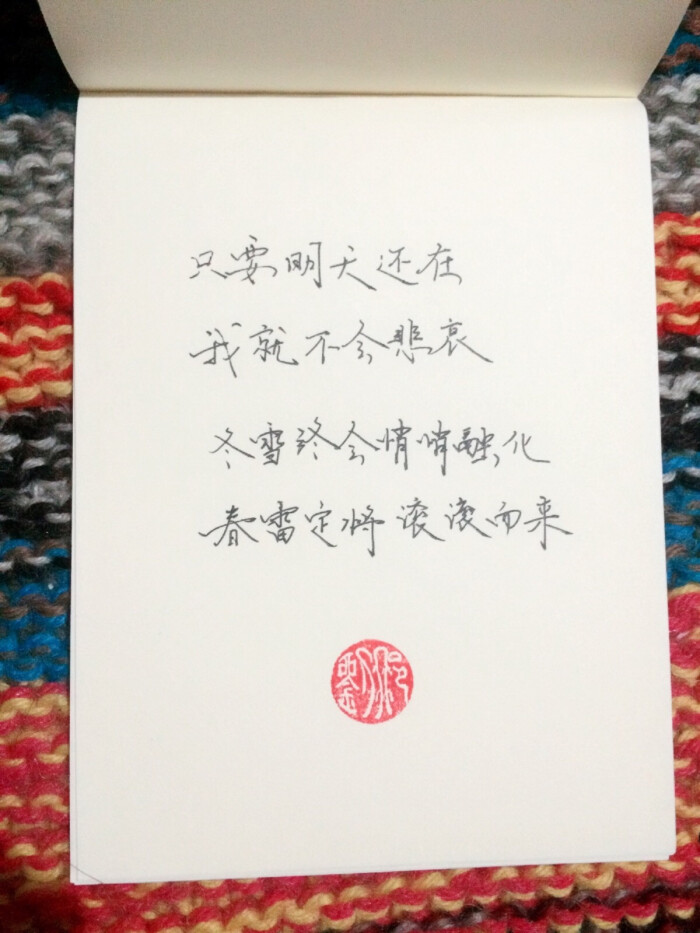 只要明天还在
我就不会悲哀
冬雪终会悄悄融化
春雷定将滚滚而来